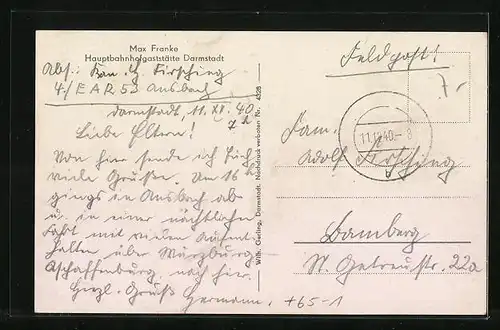 Max Franke
Hauptbahnhofgaststätte Darmstadt
Abs.: Kan. H. Firsching
4./E A R 53 Ansbach
Darmstadt, 11. XI. 40
7 h
Liebe Eltern!
Von hier sende ich Euch
viele Grüße. Um 16 h
gings in Ansbach ab
u. in einer nächtlichen
Fahrt mit vielen Aufent-
halten über Würzburg-
Aschaffenburg nach hier.
Herzl. Gruß Hermann.
Wilh. Gerling, Darmstadt. Nachdruck verboten Nr. 4328
Feldpost!
7.-
11.11.40.- 8
Fam.
Adolf Firsching
Bamberg
St. Getreustr. 22a
+65-1